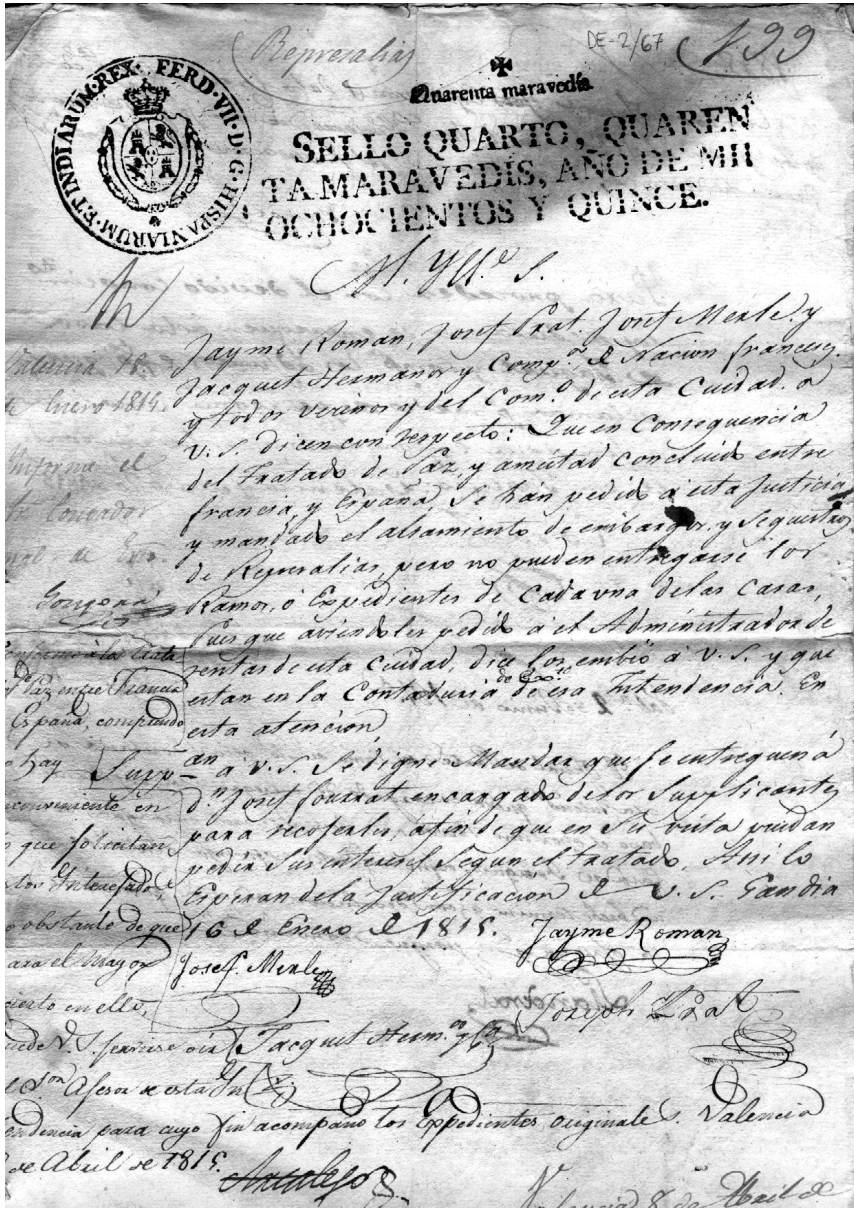 Represalias
DE-2/67
199
Quarenta maravedis
FERD·VII·D·G·HISPANIARUM·ET INDIARUM·REX·
SELLO QUARTO, QUAREN
TA MARAVEDIS, AÑO DE MIL
OCHOCIENTOS Y QUINCE.
M. Yll.e S.
Jayme Roman, Josef Prat, Josef Merle, y
Jacquet Hermanos y Comp.a de Nacion francesa,
y todos vecinos y del Com.o de esta Ciudad, a
V. S. dicen con respecto: Que en Consequencia
del Tratado de Paz y amistad concluido entre
francia, y España Se han pedido a esta Justicia
y mandado el alsamiento de embargos, y Sequestros
de Represalias, pero no pueden entregarse los
Ramos, ó Expedientes de Cada una de las Casas,
Pues que aviendoles pedido a el Administrador de
rentas de esta Ciudad, dice los embió a V. S. y que
estan en la Contaduria de Ex.to de esa Intendencia. En
esta atencion,
Supp.an a V. S. Se digne Mandar que se entreguen á
d.n Josef fourrat encargado de los Supplicantes
para recoferles, afin de que en Su vista puedan
pedir Sus intereses Segun el tratado, Asi lo
Esperan de la Justificacion de V. S. Gandia
16 de Enero de 1815.
Jayme Roman
Josef Merle
Joseph Prat
Jacquet Herm.os y C.a
Valencia 18
de Enero 1815.
Informe el
Contador
de Ex.to
Gongora
Conforme á la trata
de Paz entre Francia
y España, comprendo
no hay
inconveniente en
lo que solicitan
estos Interesados,
no obstante de que
para el mayor
acierto en ello,
puede V. S. servirse oir
el S.or Asesor de esta In
tendencia para cuyo fin acompaño los Expedientes originales. Valencia
de Abril de 1815.
Valencia 8 de Abril de